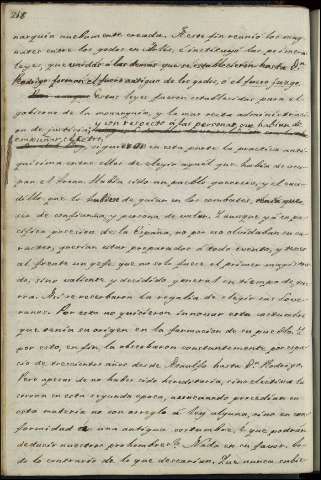 218
narquia nuebamente creada. A este fin reunió los mag-
nates entre los godos en Toledo, è instituyó las primeras
leyes, que unidas à las demas que se establecieron hasta Dn.
Rodrigo forman el fuero antiguo de los godos, o el fuero juzgo.
Estas leyes fueron establecidas para el
gobierno de la monarquia, y la mas recta administraci-
on de justicia; y con respecto a las personas que habian de
siguieron en esta parte la practica anti-
quisima entre ellos de elegir aquel que habia de ocu-
par el trono. Habia sido un pueblo guerrero, y el cau-
dillo que los hubiese de guiar en los combates,
ser de confianza, y persona de valor. Y aunque yá en pa-
cifica posesion de la España, no por eso olvidaban su ca-
racter, querian estar preparados à todo evento, y tener
al frente un gefe que no solo fuese el primer magistra-
do, sino valiente, y decidido general en tiempo de gue-
rra. Asi se reserbaron la regalia de elegir sus sobe-
ranos. Por esto no quisieron innovar esta costumbre
que tenia su origen en la formacion de su pueblo. Y
por esto, en fin, la observaron constantemente por espa-
cio de trescientos años desde Ataulfo hasta Dn. Rodrigo.
Pero apesar de no haber sido hereditaria, sino electiva la
corona en esta segunda epoca, aun cuando procedian en
esta materia no con arreglo á ley alguna, sino en con-
formidad a una antigua costumbre, ¿que podrán
deducir nuestros prohombres? Nada en su favor, to-
do lo contrario de lo que descarian. Que nunca hubie-